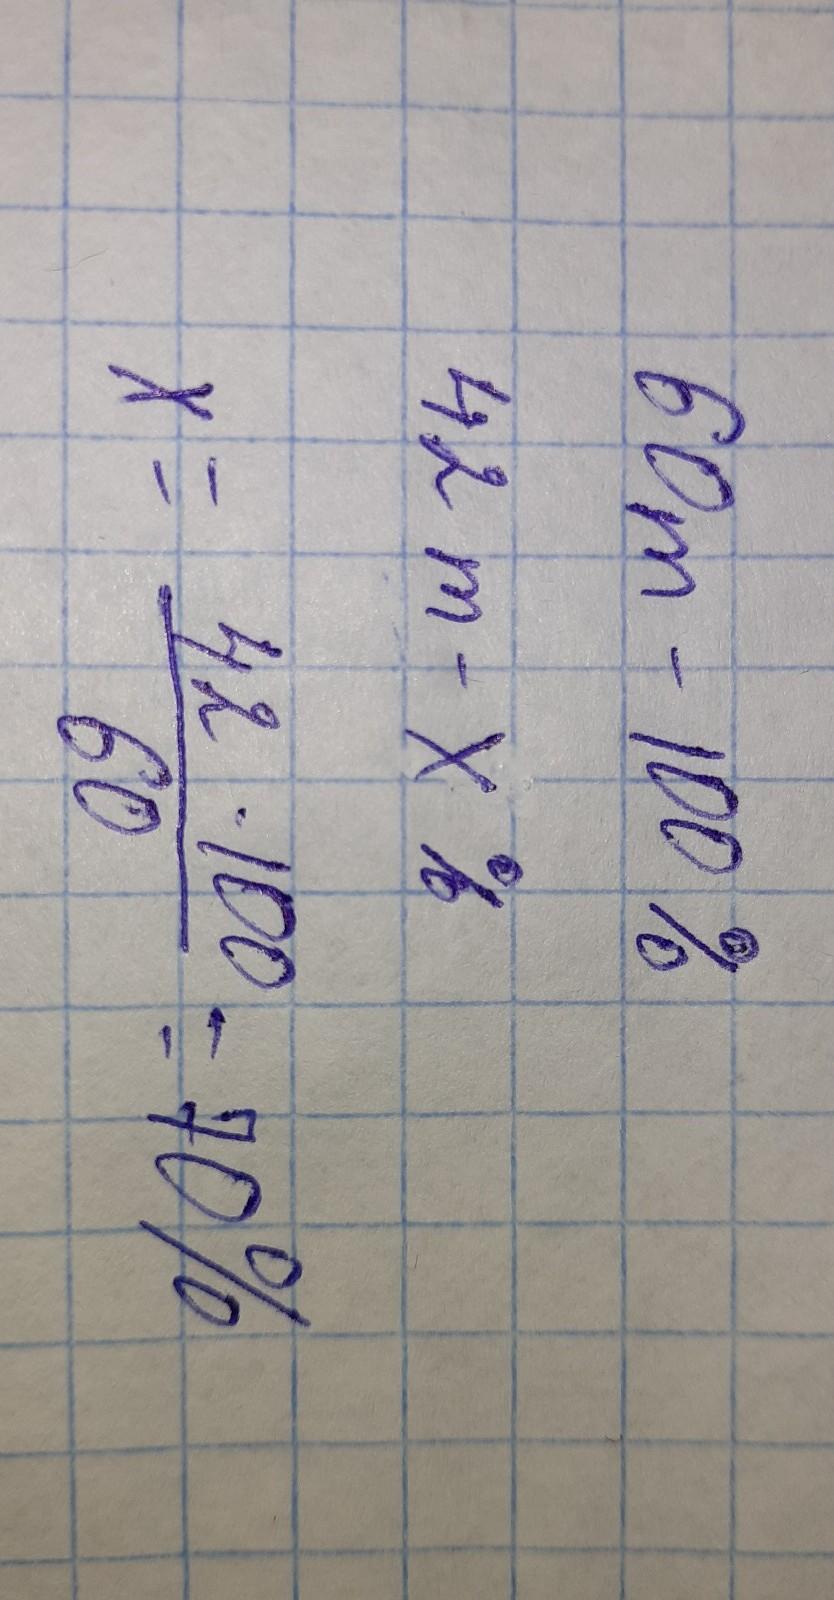 60m - 100%
42m - x%
x = 42·100/60 = 70%